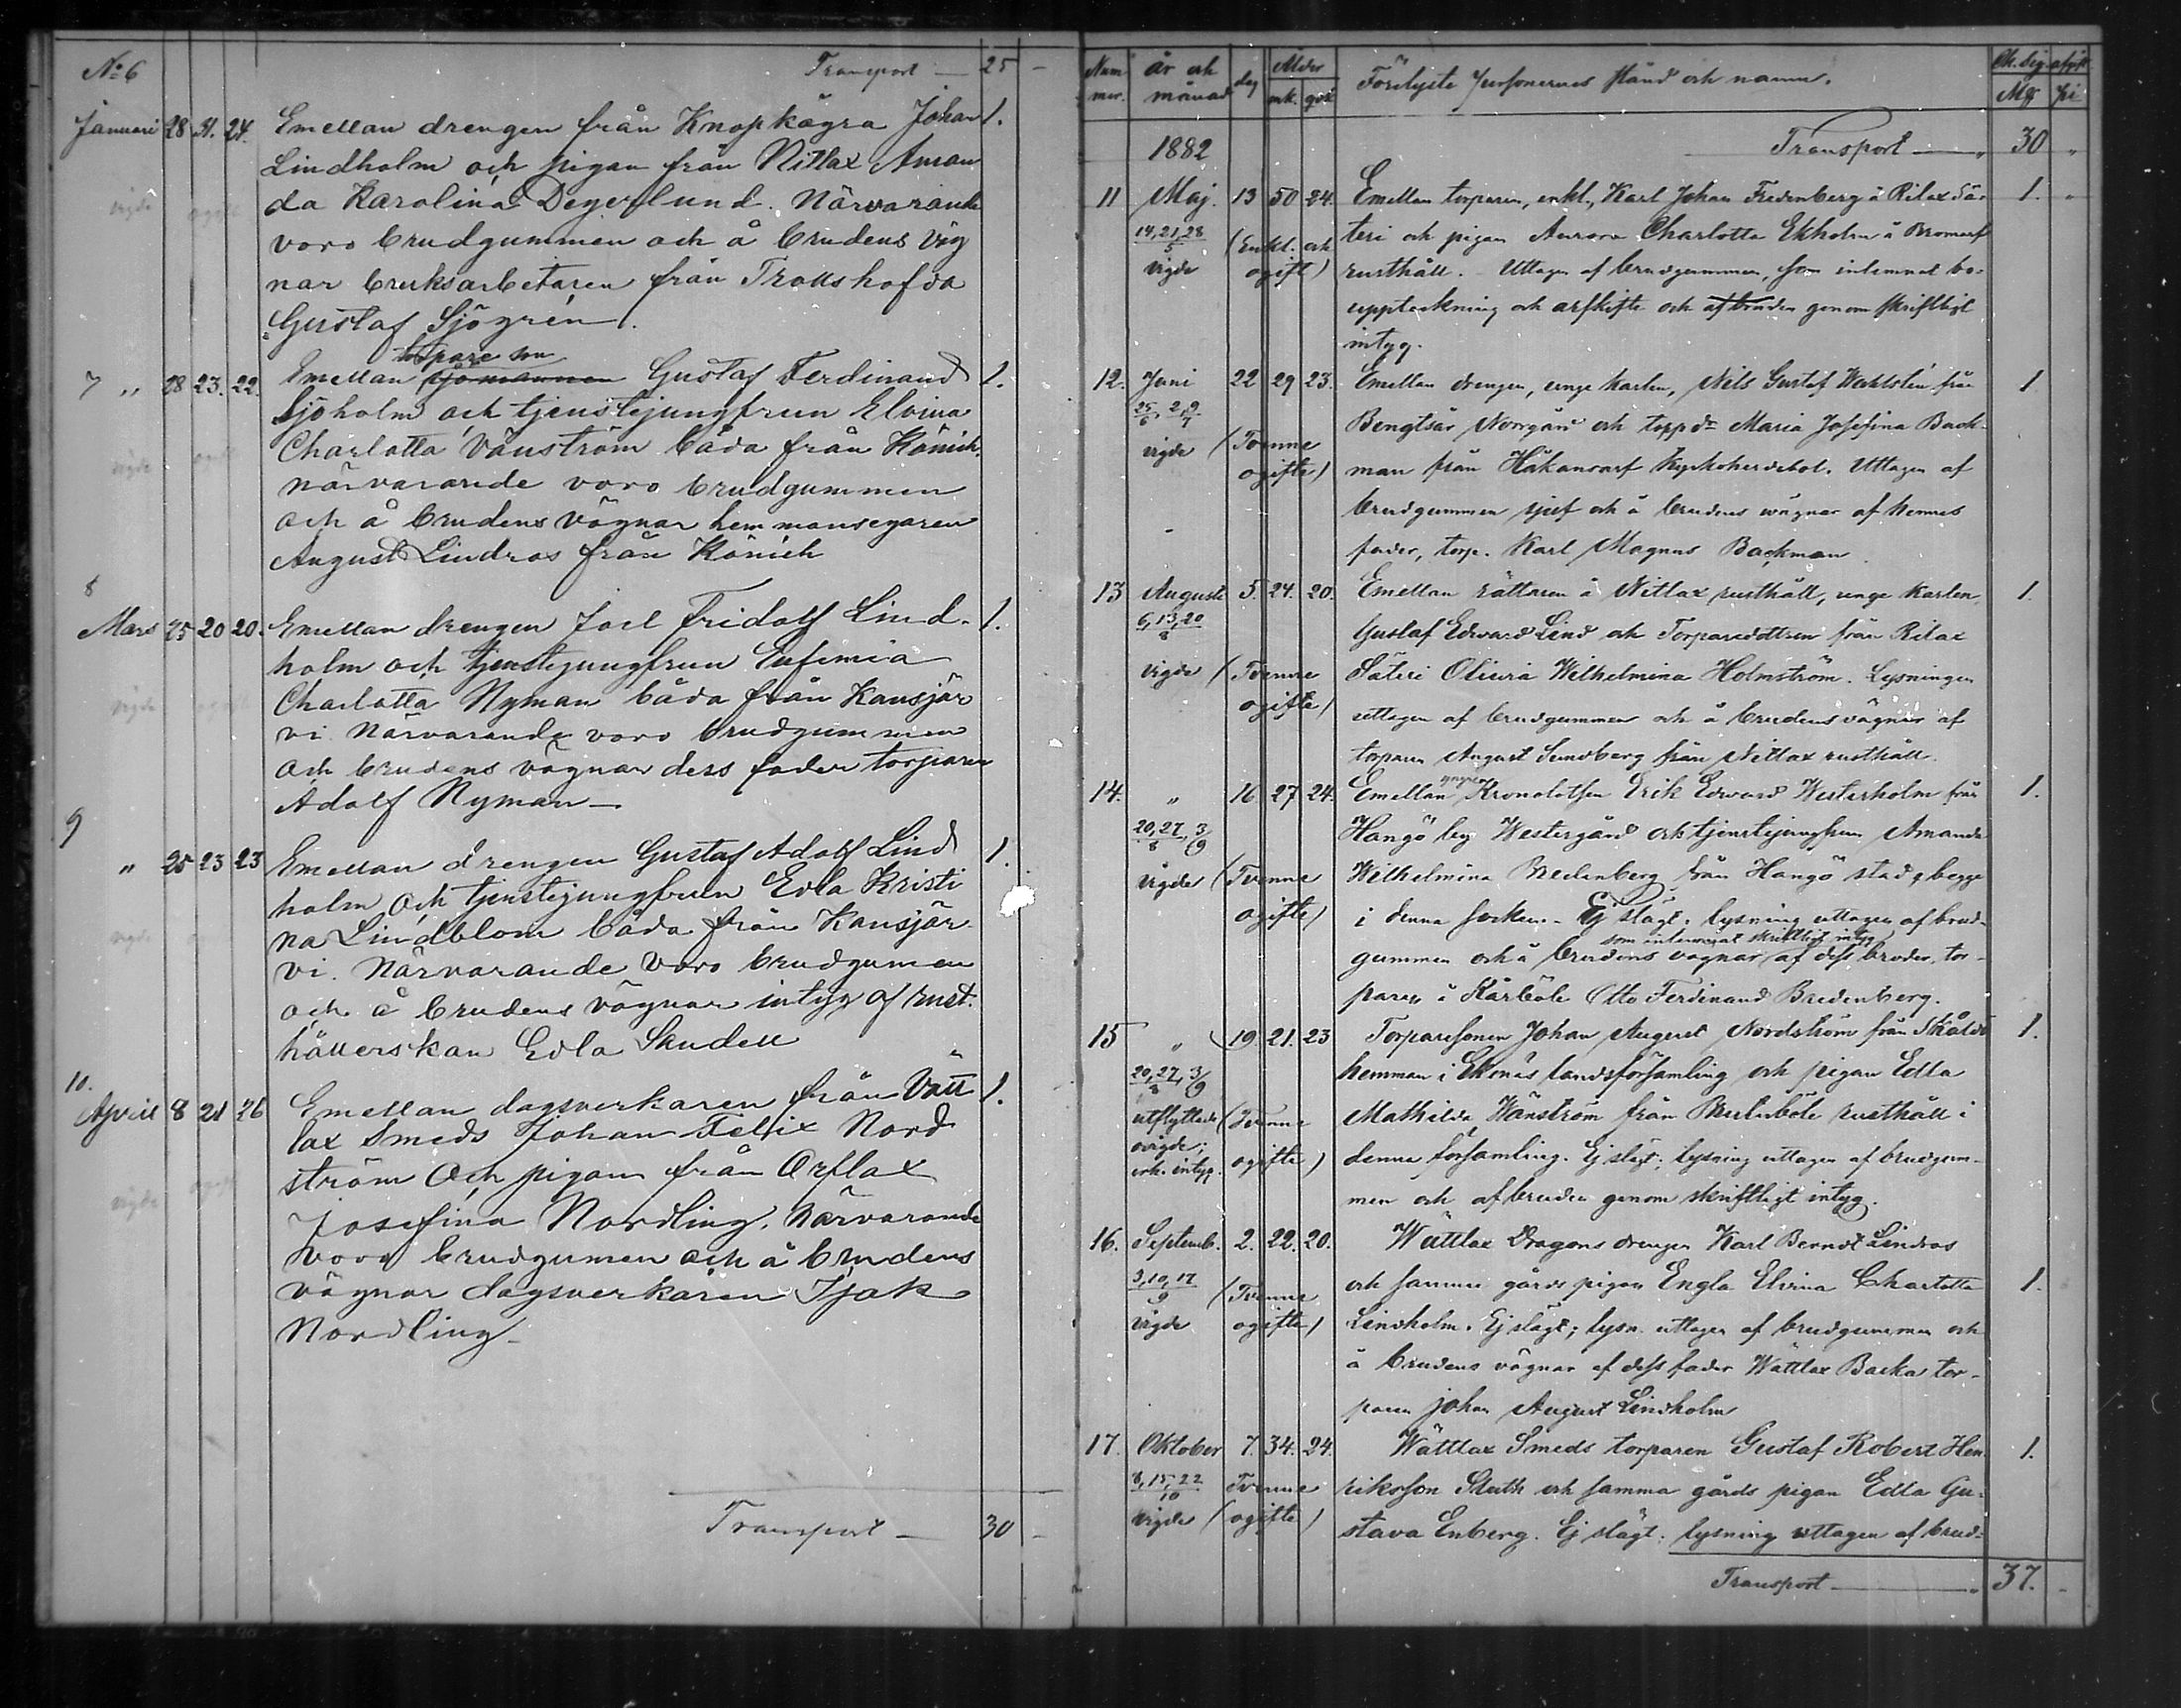 No 6 Transport — 25 -
Januari 28 31. 24. Emellan drengen från Knopkägra Johan 1.
Lindholm och pigan från Nitlax Aman
da Karolina Degerlund. Närvarande
vigde ogift
voro brudgummen och å brudens väg
nar bruksarbetaren från Trollshofda
Gustaf Sjögren.
torpare son
7 " 28 23. 22. Emellan sjömannen Gustaf Ferdinand 1.
Sjöholm och tjenstejungfrun Elvina
Charlotta Vänström båda från Könick.
vigde ogift
närvarande voro brudgummen
och å brudens vägnar hemmansegaren
August Lindros från Könick
8
Mars 25 20 20. Emellan drengen Joel Fridolf Lind- 1.
holm och tjenstejungfrun Eufemia
Charlotta Nyman båda från Kansjär
vigde
vi Närvarande voro brudgummen
och brudens vägnar dess fader torparen
Adolf Nyman —
9
" 25 23 23 Emellan drengen Gustaf Adolf Lind 1.
holm och tjenstejungfrun Edla Kristi
na Lindblom båda från Kansjär-
vigde
vi. Närvarande voro brudgumen
och å brudens vägnar intyg af rust-
hållerskan Edla Skudell
10.
April 8 21 26 Emellan dagsverkaren från Vätt 1.
lax Smeds Johan Felix Nord
ström Och pigan från Orflax
vigde ogift
Josefina Nordling. Närvarande
voro brudgumen och å brudens
vägnar dagsverkaren Isak
Nordling—
Transport — 30 -
Num mer. år och månad dag Ålder mk. qvk Förelyste personernes stånd och namn. Mk pi
1882 Transport — " 30 "
11 Maj. 13 50 24. Emellan torparen, enkl., Karl Johan Fredenberg å Rilax Sä- 1. "
14, 21, 28/5 (Enkl. och teri och pigan Aurora Charlotta Ekholm å Bromarf
vigde ogift) rusthåll. Uttagen af brudgummen, som inlemnat bo-
uppteckning och arfskifte och af bruden genom skriftligt
intyg.
12. Juni 22 29 23. Emellan drengen, unge karlen, Nils Gustaf Wahlsten från 1
25/6, 2,9/7 Bengtsår Norrgård och torpdr Maria Josefina Back-
vigde (Tvenne ogifte) man från Håkansarf Kyrkoherdebol. Uttagen af
brudgummen sjelf och å brudens wägnar af hennes
fader, torp. Karl Magnus Backman.
13 Augusti 5. 24. 20. Emellan rättaren å Nitlax rusthåll, unge karlen, 1.
6, 13, 20/8 Gustaf Edward Lind och Torparedottren från Rilax
vigde (Tvenne ogifte) Säteri Olivia Wilhelmina Holmström. Lysningen
uttagen af brudgummen och å brudens vägnar af
torparen August Sundberg från Nitlax rusthåll.
yngre
14. " 16 27 24. Emellan Kronolotsen Erik Edward Westerholm från 1.
20, 27/8, 3/9 Hangö by Westergård och tjenstejungfrun Amanda
vigde (Tvenne Wilhelmina Bredenberg från Hangö stad, begge
ogifte) i denna socken. - Ej slägt. lysning uttagen af brud-
som inlemnat skriftligt intyg
gummen och å brudens vagnar af dess broder, tor-
paren i Kårböle Otto Ferdinand Bredenberg.
15 " 19. 21. 23 Torparesonen Johan August Nordström från Skåldö 1.
20, 27/8, 3/9 hemman i Ekenäs landsförsamling och pigan Edla
utflyttade (Tvenne Mathilda Wänström från Brulubölé rusthåll i
ovigde; erh. intyg. ogifte) denna församling. Ej slägt; lysning uttagen af brudgum-
men och af bruden genom skriftligt intyg.
16. Septemb. 2. 22. 20. Wättlax Dragons drengen Karl Berndt Lindros
3, 10, 17/9 (Tvenne och samma gårds pigan Engla Elvina Charlotta 1.
vigde ogifte) Lindholm. Ej slägt; lysn. uttagen af brudgummen och
å brudens vägnar af dess fader Wättlax Backa tor-
paren Johan August Lindholm
17. Oktober 7. 34. 24. Wättlax Smeds torparen Gustaf Robert Hen- 1.
8, 15, 22/10 Tvenne riksson Sluth och samma gårds pigan Edla Gu-
vigde (ogifte) stava Enberg. Ej slägt. lysning uttagen af brud-
Transport — " 37. -